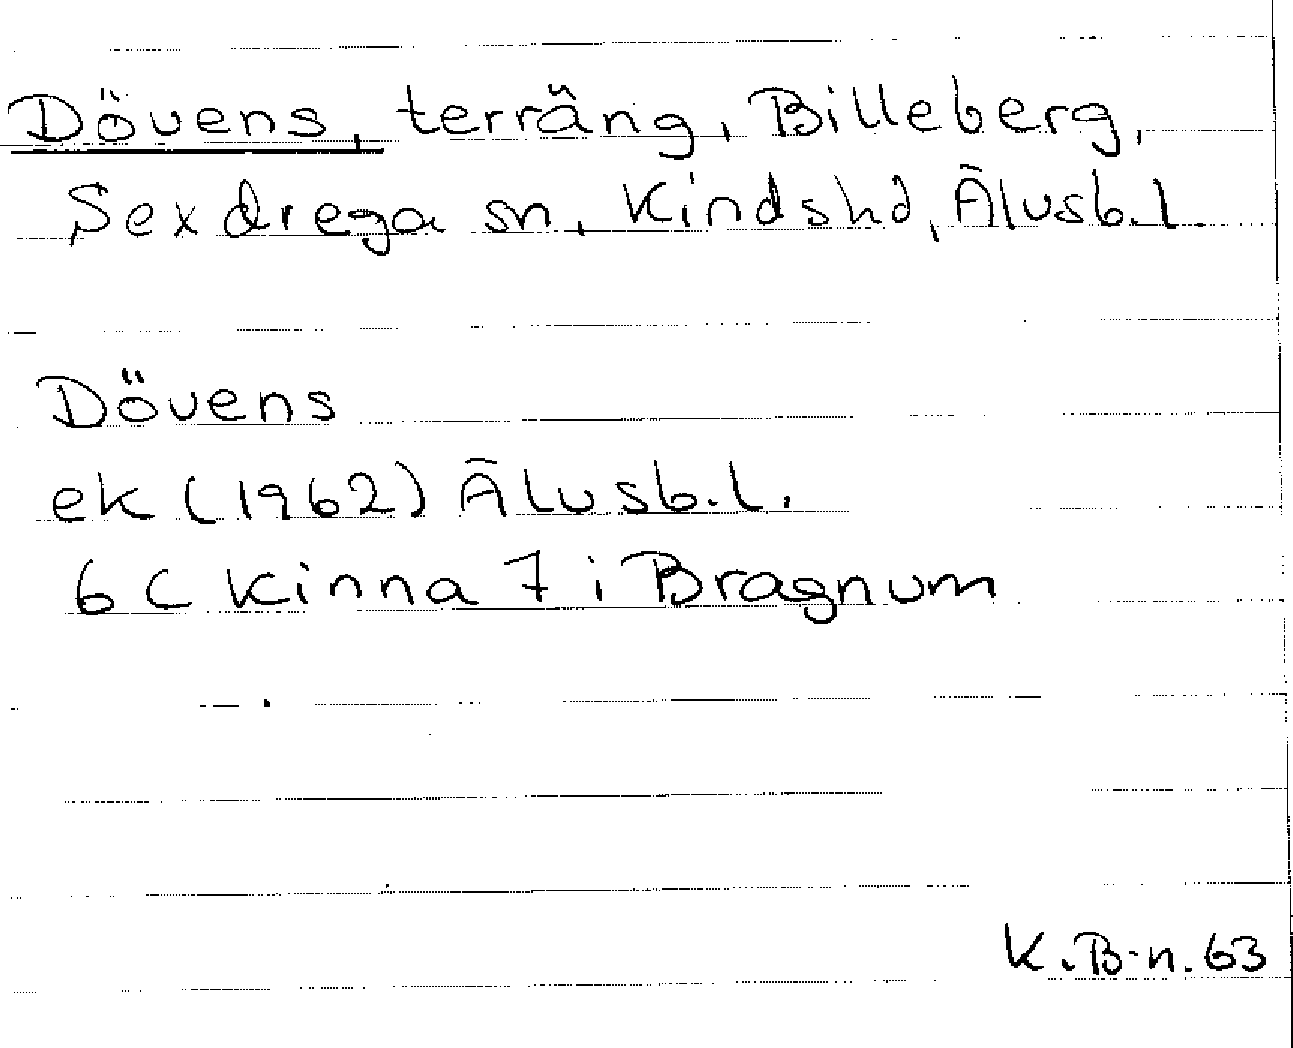 Dövens, terräng, Billeberg,
Sexdrega sn, Kindshd, Älvsb.l
Dövens
ek (1962) Älvsb.l.
6 C Kinna 7 i Bragnum
K.B-n. 63